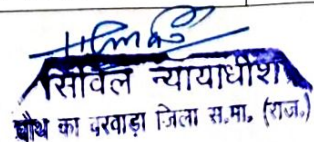 सिविल न्यायाधीश
चौथ का बरवाड़ा जिला स.मा. (राज.)